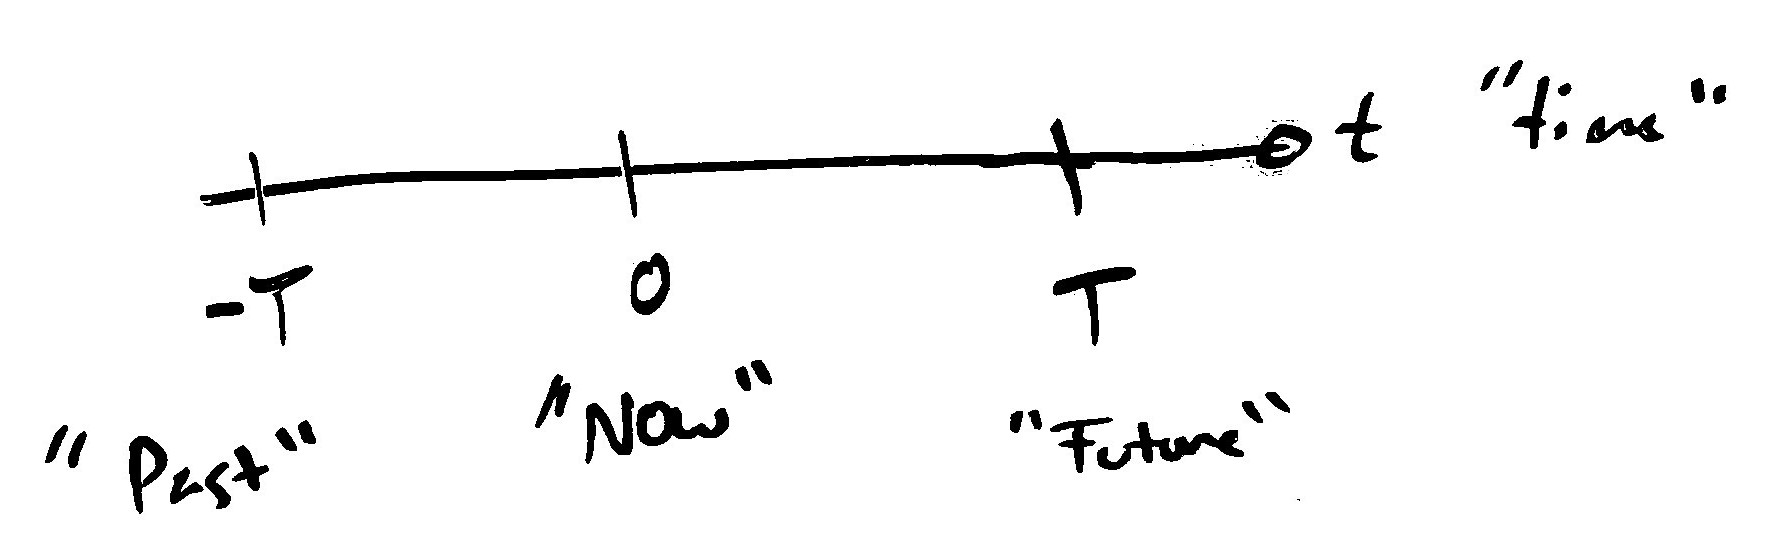 t "time"
-T 0 T
"Past" "Now" "Future"